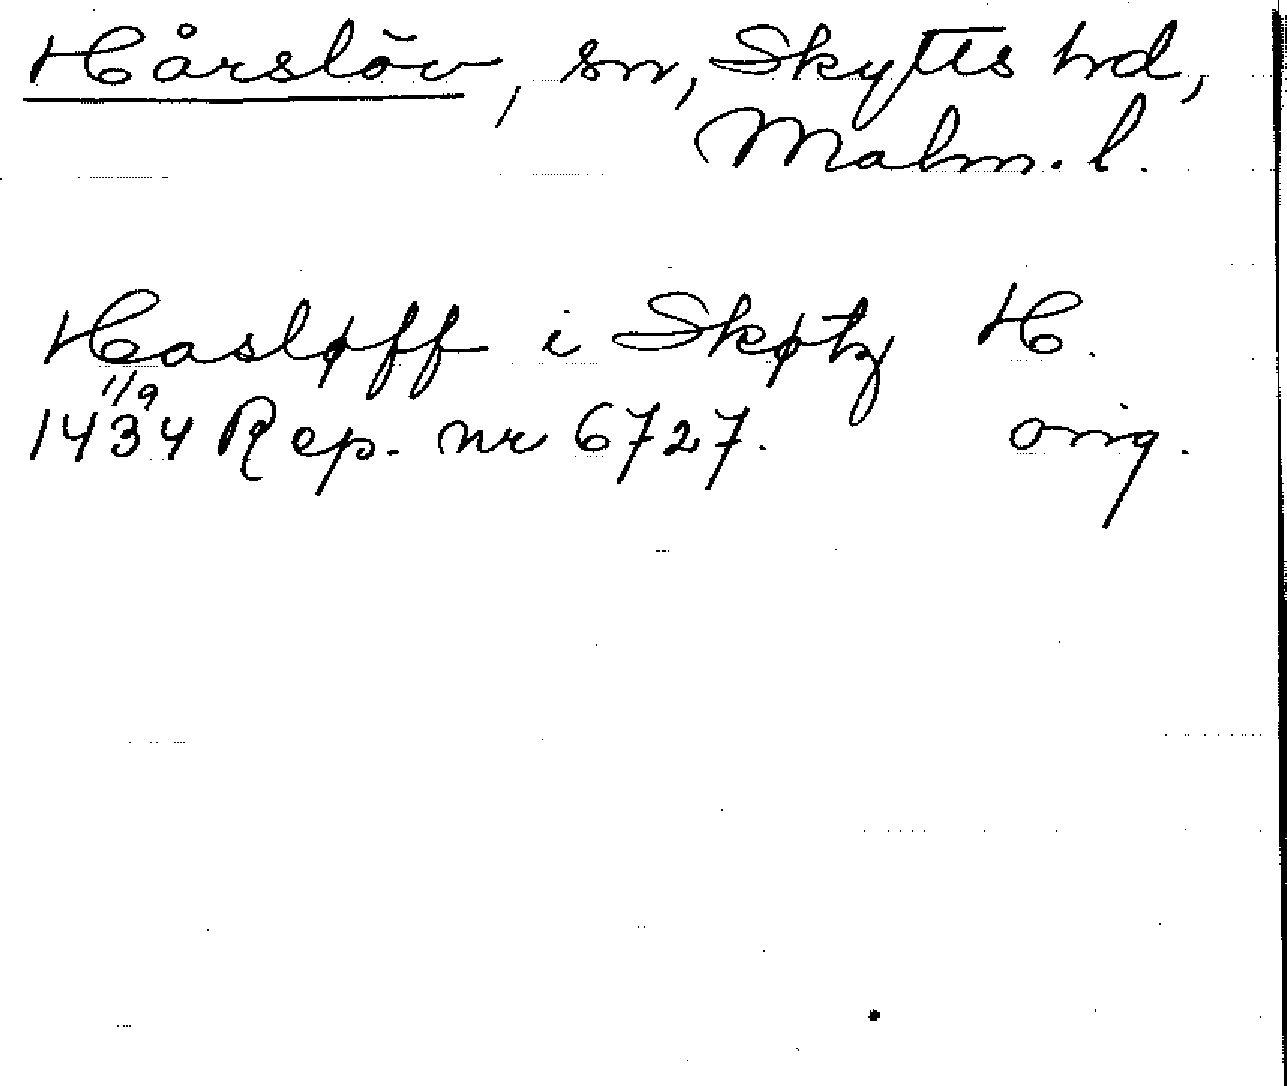 Hårslöv, sn, Skytts hd,
Malm. l.
Hasløff i Skøtz H.
11/9
1434 Rep. nr 6727. orig.